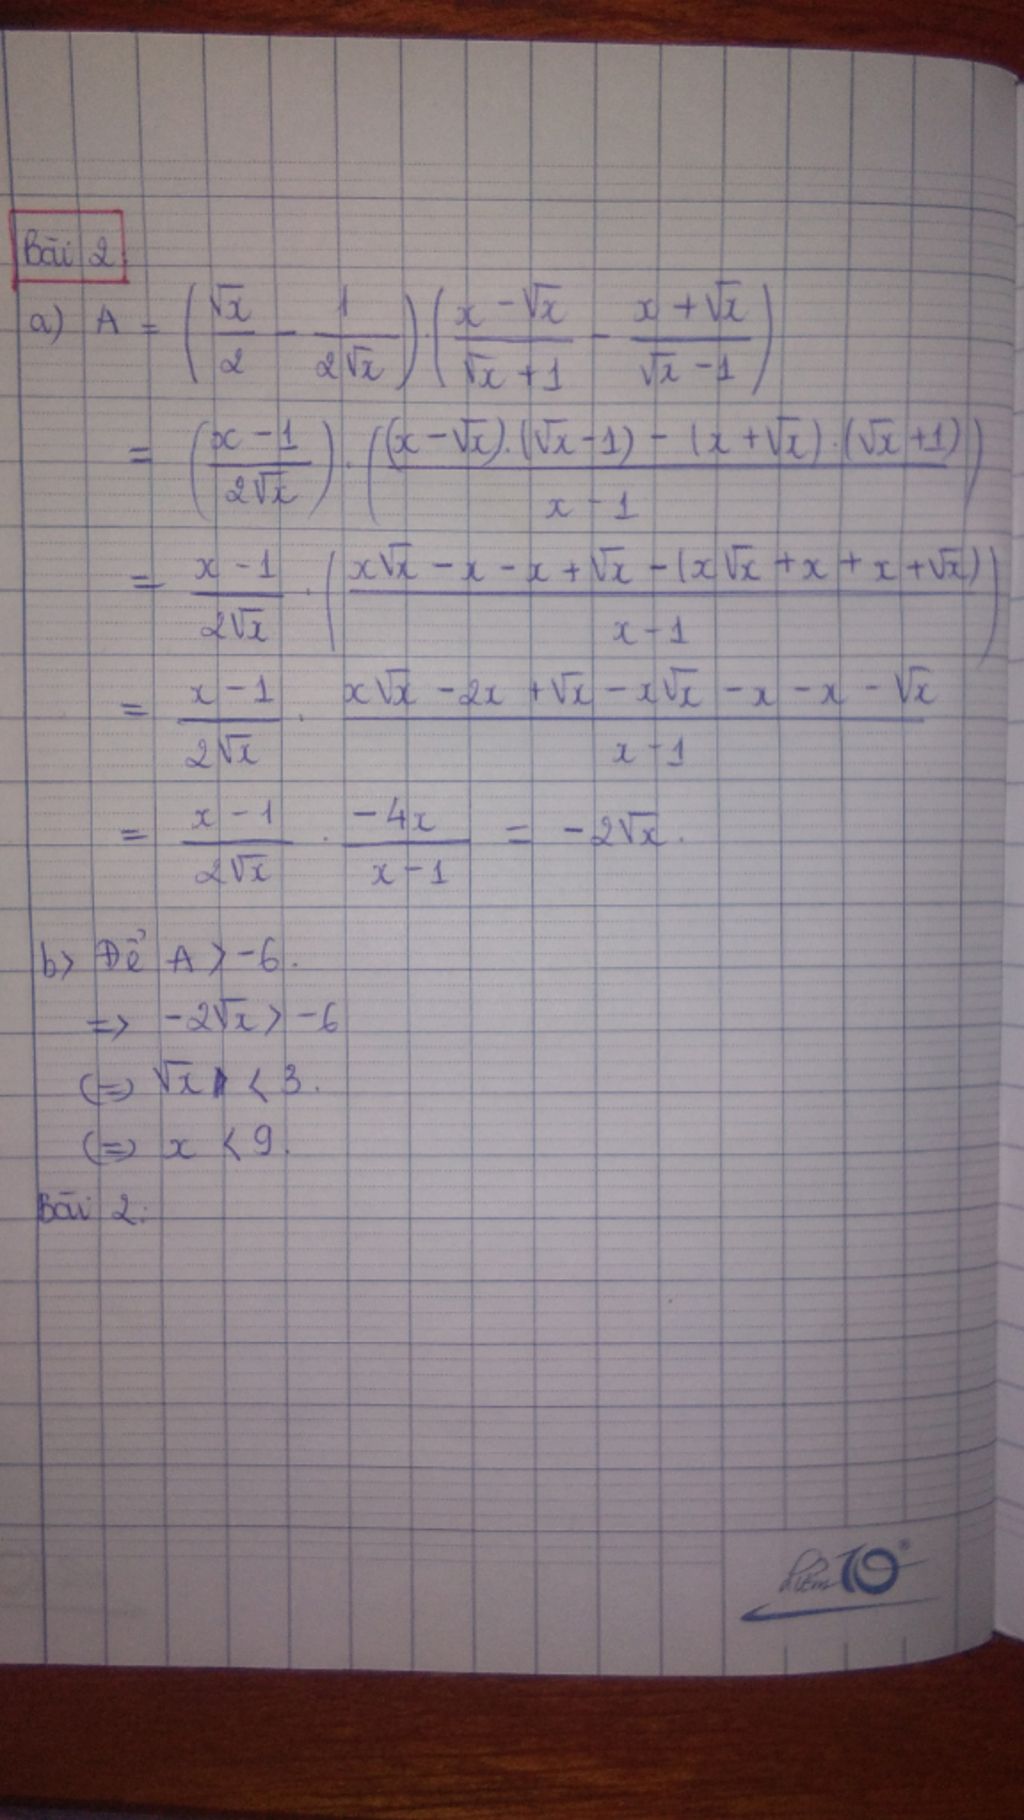 Bài 2
a) A = (√x/2 - 1/(2√x)) . ((x - √x)/(√x + 1) - (x + √x)/(√x - 1))
= ((x - 1)/(2√x)) . (((x - √x).(√x - 1) - (x + √x).(√x + 1))/(x - 1))
= (x - 1)/(2√x) . ((x√x - x - x + √x - (x√x + x + x + √x))/(x - 1))
= (x - 1)/(2√x) . (x√x - 2x + √x - x√x - x - x - √x)/(x - 1)
= (x - 1)/(2√x) . (-4x)/(x - 1) = -2√x.
b> Để A > -6.
=> -2√x > -6
(=) √x < 3.
(=) x < 9.
Bài 2:
Điểm 10